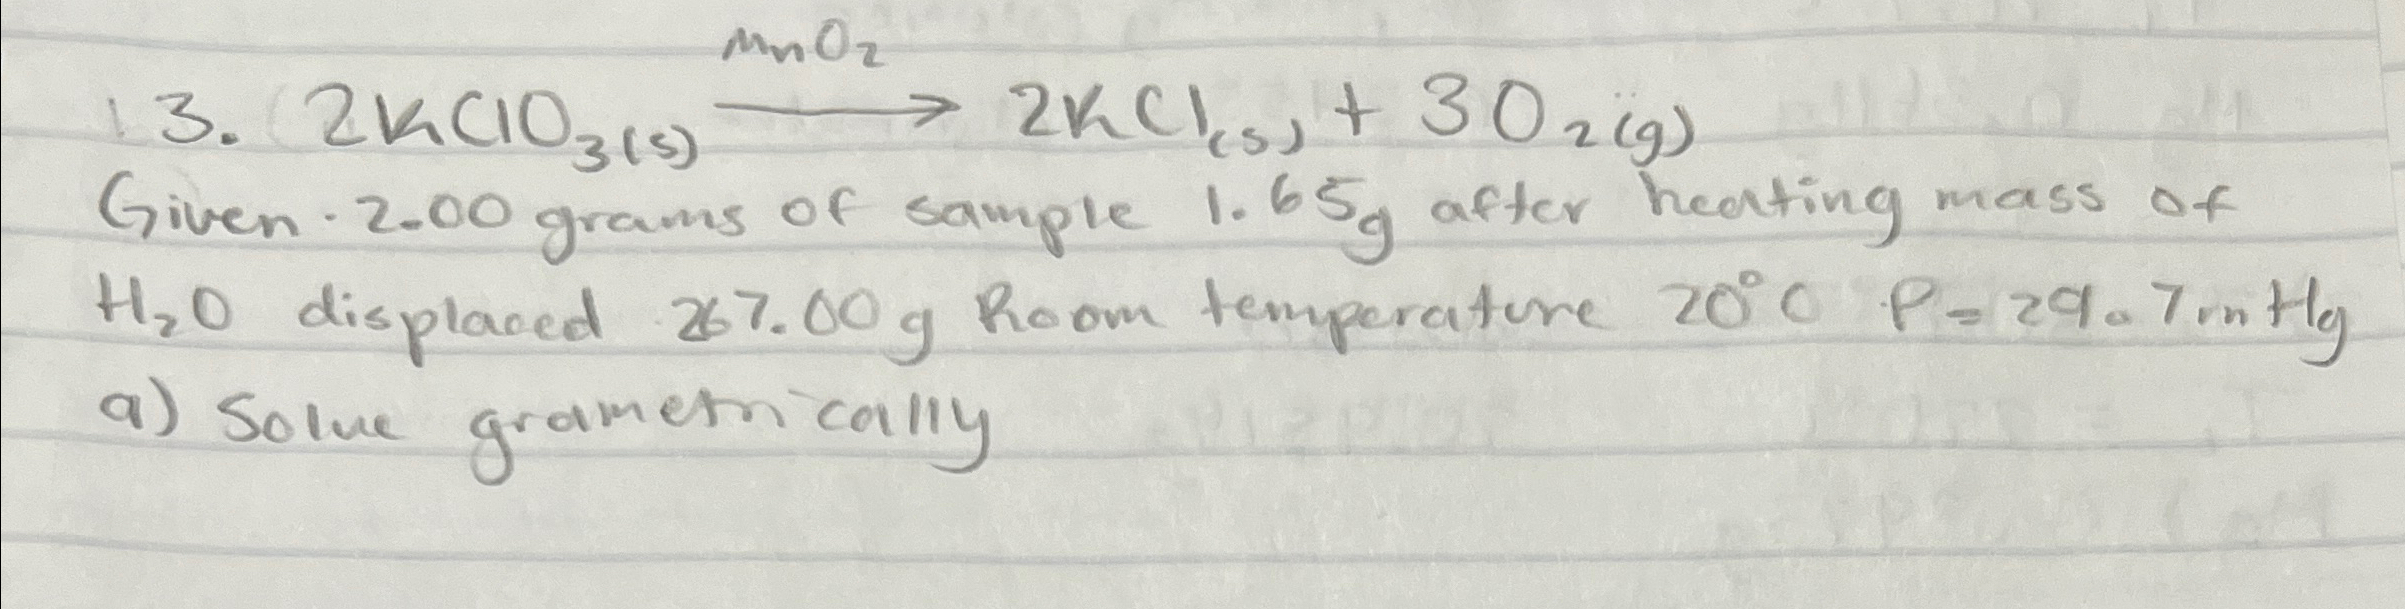 MnO2
13. 2KClO3(s) → 2KCl(s) + 3O2(g)
Given. 2.00 grams of sample 1.65g after heating mass of
H2O displaced 267.00g Room temperature 20°C P=29.7in Hg
a) Solve grametrically